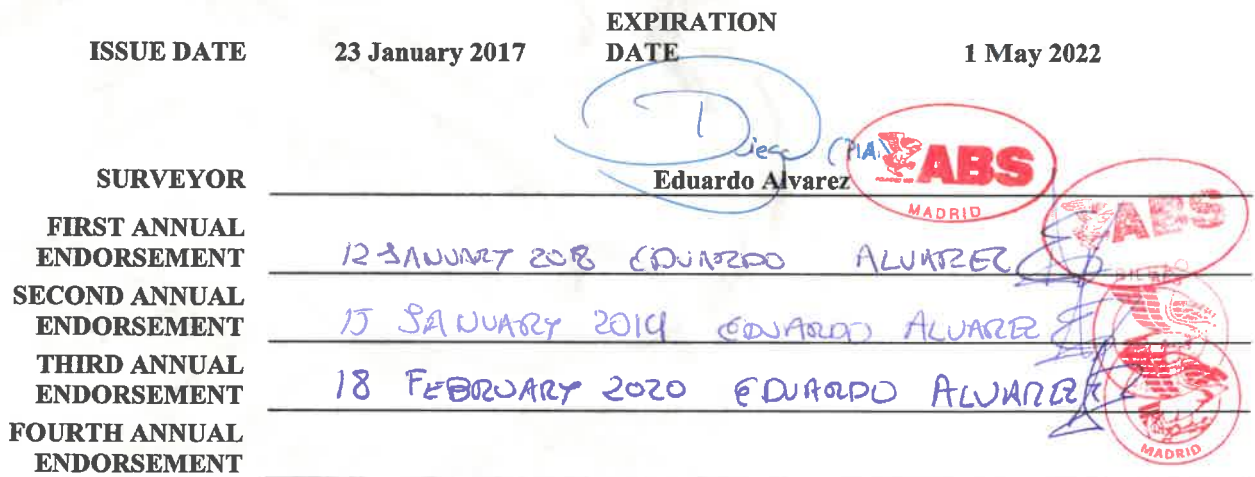 EXPIRATION
ISSUE DATE 23 January 2017 DATE 1 May 2022
Diego (PIA) ABS
SURVEYOR Eduardo Alvarez
MADRID
ABS
FIRST ANNUAL
ENDORSEMENT 12 JANUARY 2018 EDUARDO ALVAREZ
BILBAO
SECOND ANNUAL
ENDORSEMENT 15 JANUARY 2019 EDUARDO ALVAREZ
THIRD ANNUAL
ENDORSEMENT 18 FEBRUARY 2020 EDUARDO ALVAREZ
FOURTH ANNUAL
ENDORSEMENT
MADRID